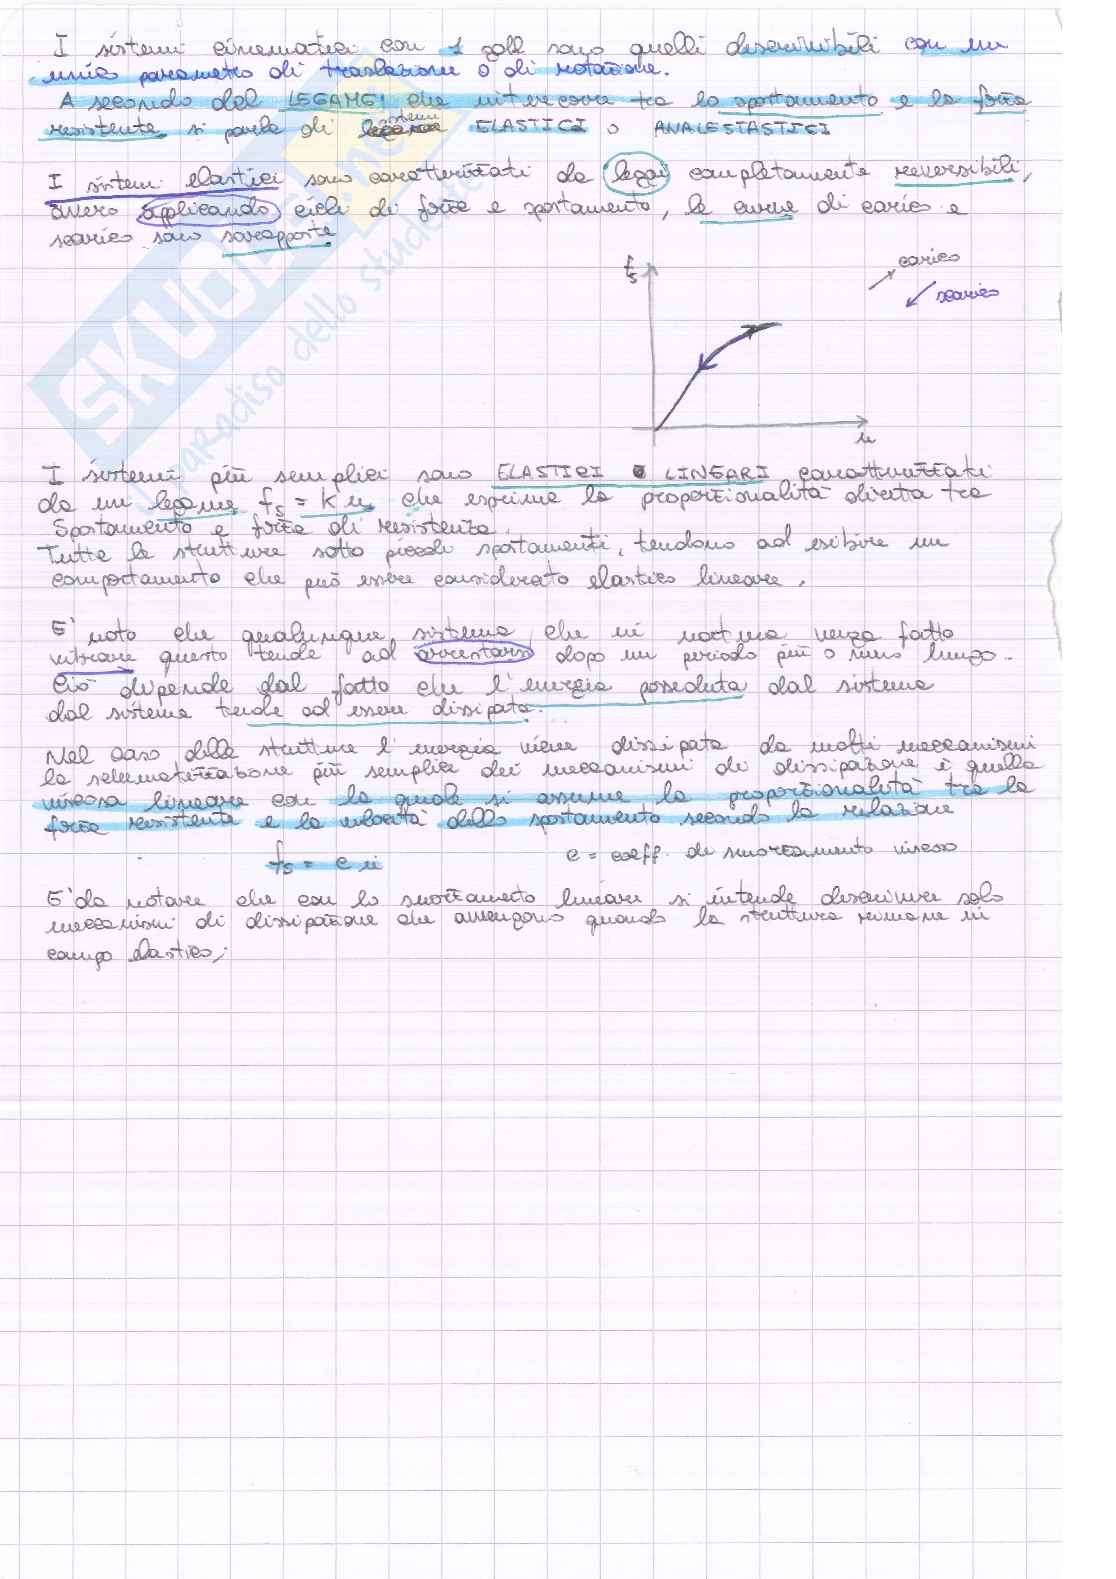 I sistemi cinematici con 1 gdl sono quelli descrivibili con un
unico parametro di traslazione o di rotazione.
A secondo del LEGAME che intercorre tra lo spostamento e la forza
resistente si parla di sistemi ELASTICI o ANALESTASTICI
I sistemi elastici sono caratterizzati da leggi completamente reversibili,
ovvero applicando cicli di forze e spostamento, le curve di carico e
scarico sono sovrapposte
fs
carico
scarico
u
I sistemi più semplici sono ELASTICI LINEARI caratterizzati
da un legame fs = K u che esprime la proporzionalità diretta tra
spostamento e forza di resistenza.
Tutte le strutture sotto piccoli spostamenti, tendono ad esibire un
comportamento che può essere considerato elastico lineare.
E' noto che qualunque sistema che in natura venga fatto
vibrare questo tende ad arrestarsi dopo un periodo più o meno lungo.
Ciò dipende dal fatto che l'energia posseduta dal sistema
dal sistema tende ad essere dissipata.
Nel caso delle strutture l'energia viene dissipata da molti meccanismi
la schematizzazione più semplice dei meccanismi di dissipazione è quella
viscosa lineare con la quale si assume la proporzionalità tra la
forza resistente e la velocità dello spostamento secondo la relazione
fs = c u̇
c = coeff. di smorzamento viscoso
E' da notare che con lo smorzamento lineare si intende descrivere solo
meccanismi di dissipazione che avvengono quando la struttura rimane in
campo elastico.
SKUOLA.net
il paradiso dello studente